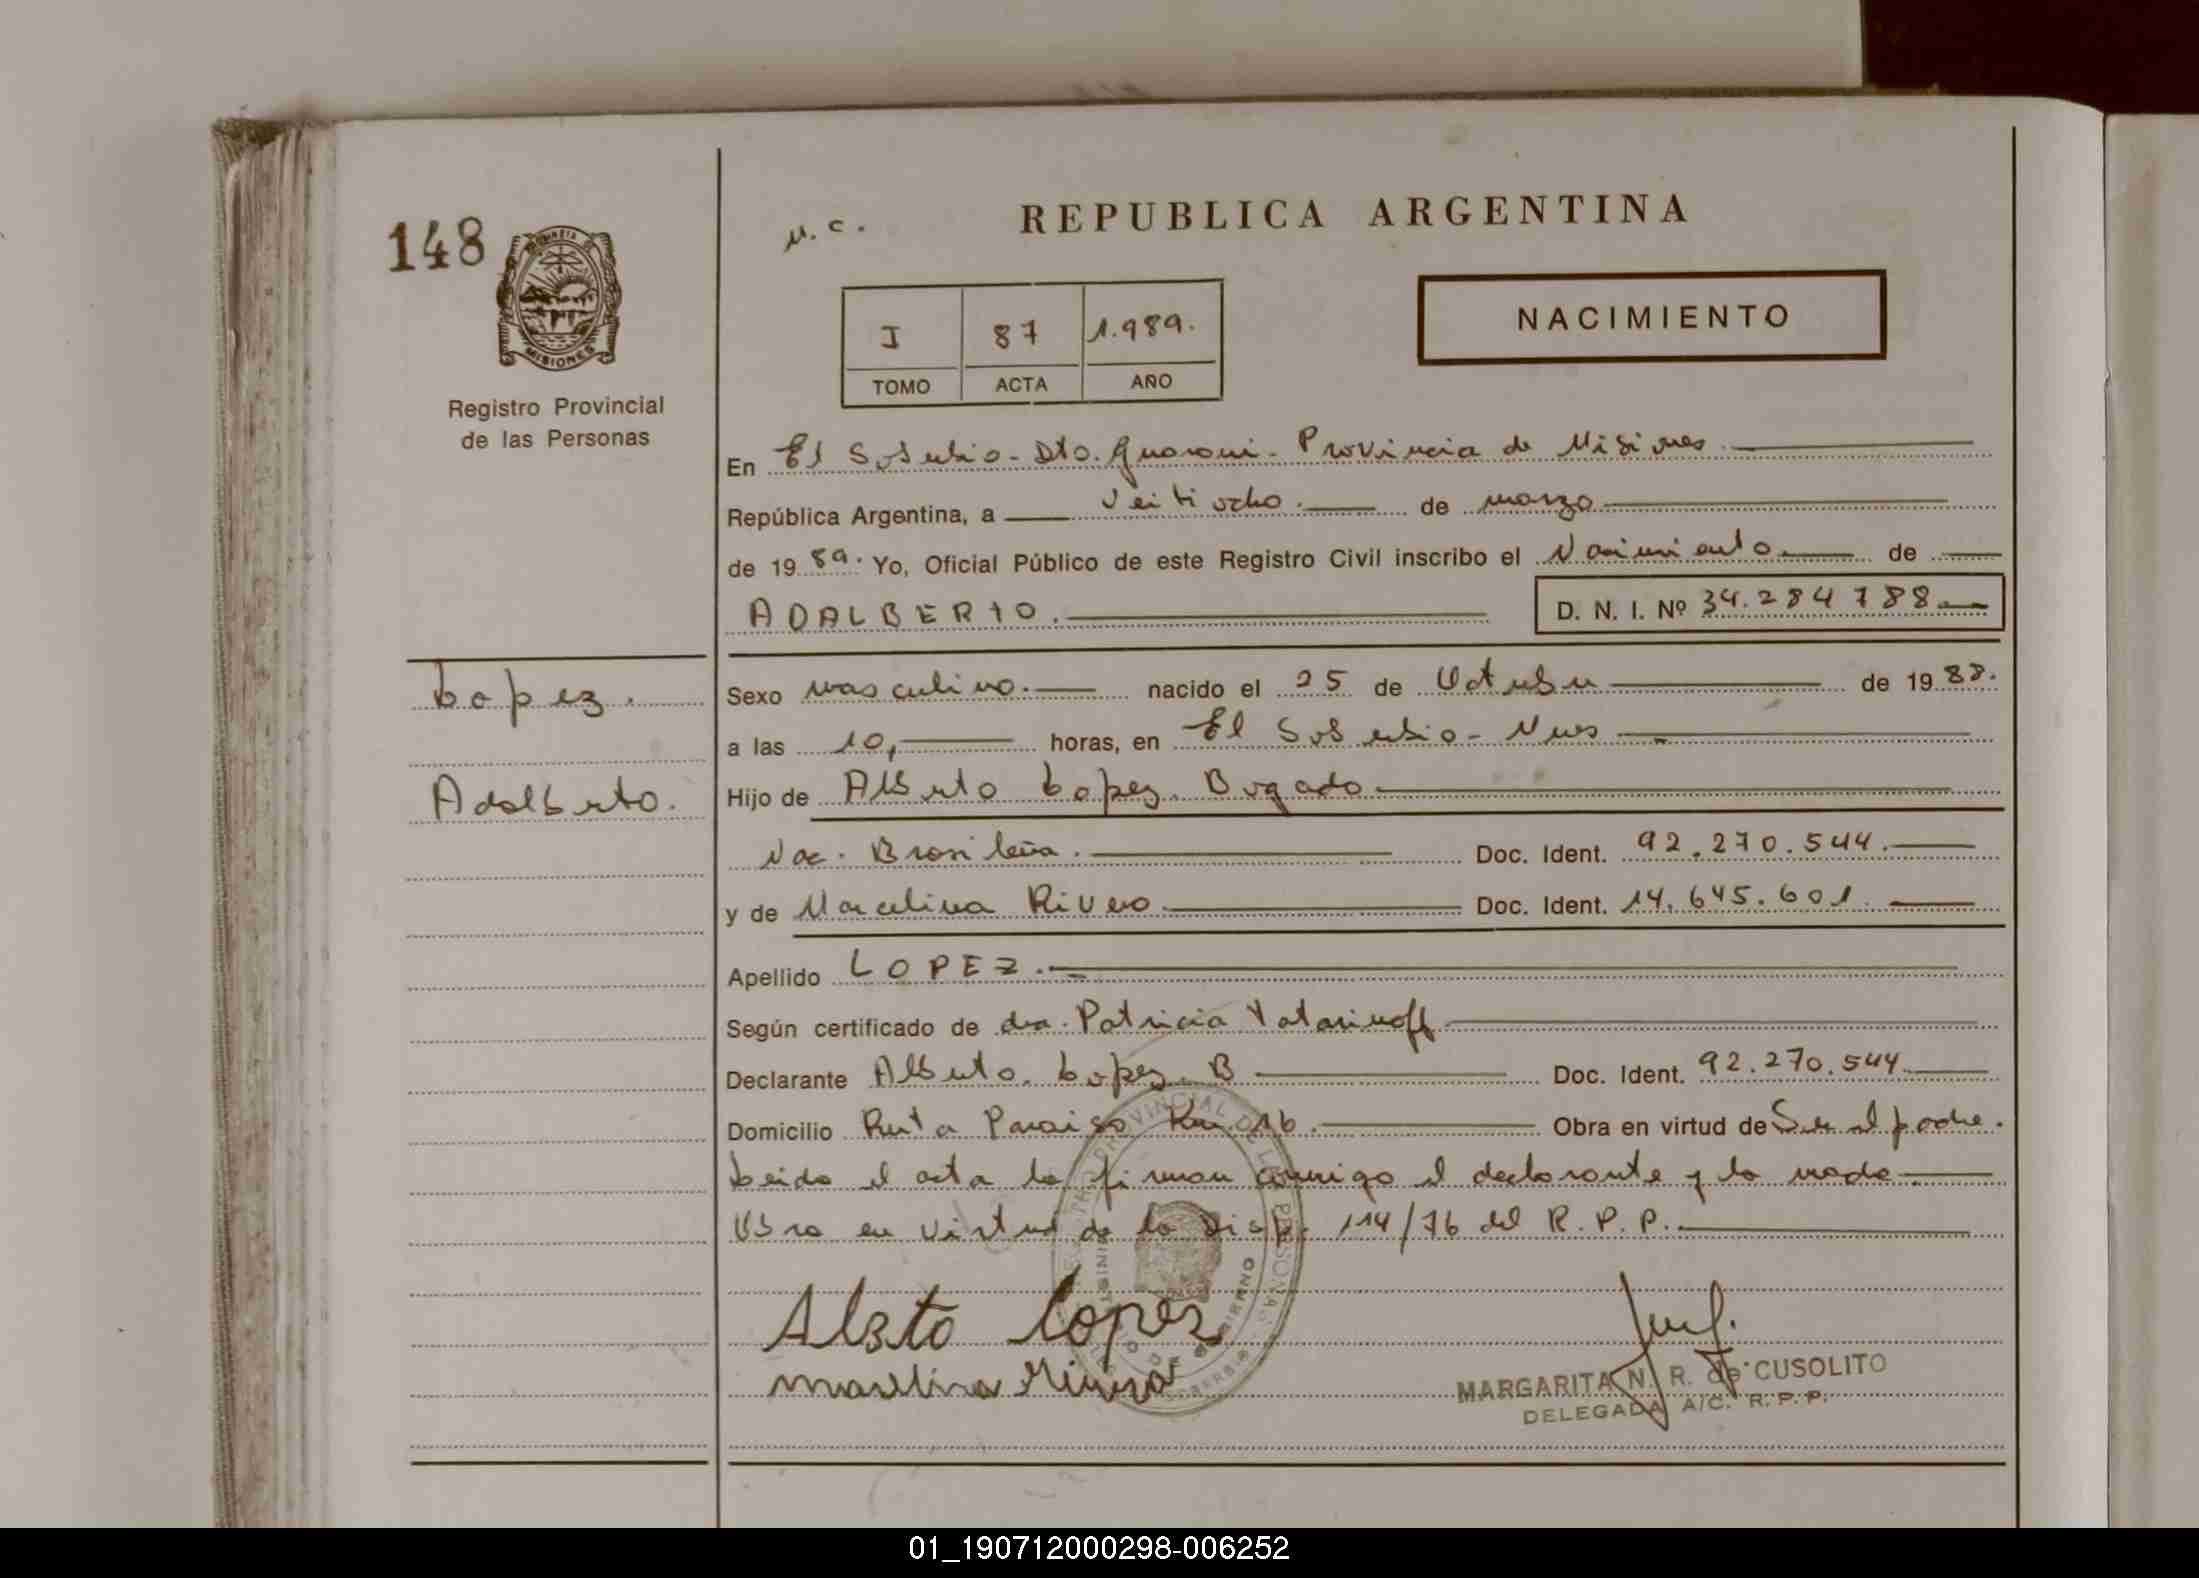 148
PROVINCIA DE
MISIONES
Registro Provincial
de las Personas
N. C.
REPUBLICA ARGENTINA
I 87 1.989.
TOMO ACTA AÑO
NACIMIENTO
En El Soberbio - Dto. Guarani - Provincia de Misiones
República Argentina, a Veitiocho. de marzo
de 19 89. Yo, Oficial Público de este Registro Civil inscribo el Nacimiento de
ADALBERTO. D. N. I. Nº 34.284788
Lopez.
Adalberto.
Sexo masculino. nacido el 25 de Octubre de 19 88.
a las 10, horas, en El Soberbio - Mnes
Hijo de Alberto Lopez. Bogado
Nac. Brasileña. Doc. Ident. 92.270.544.
y de Marcelina Rivero Doc. Ident. 14.645.601.
Apellido LOPEZ.
Según certificado de dra. Patricia Tatarinoff
Declarante Alberto. Lopez. B Doc. Ident. 92.270.544
Domicilio Ruta Paraiso Km. 16. Obra en virtud de Ser el padre.
Leida el acta la firman conmigo el declarante y la madre
Obra en virtud de la Disp. 114/76 del R. P. P.
Alberto Lopez
REGISTRO PROVINCIAL DE LAS PERSONAS
MINISTERIO DE GOBIERNO
MARGARITA N. R. de CUSOLITO
DELEGADA A/C. R. P. P.
01_190712000298-006252